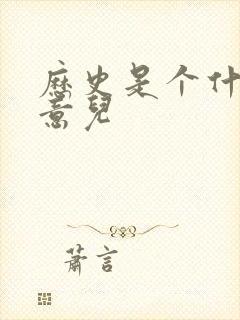 歷史是个什
意兒
蕭言